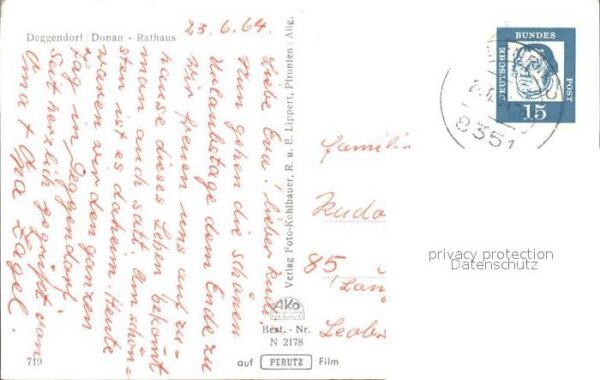 Deggendorf/Donau - Rathaus
23.6.64.
Liebe Eva! lieber Rudi.
Nun gehen die schönen
Urlaubstage dem Ende zu
Wir freuen uns auf zu-
hause dieses Leben bekommt
man auch satt. Am schön-
sten ist es daheim. Heute
waren wir den ganzen
Tag in Deggendorf.
Seit herzlich gegrüßt von
Oma + Opa Zagel.
719
Verlag Foto-Kohlbauer, R. u. E. Lippert, Pfronten/Allg.
AKO
Best. - Nr.
N 2178
auf PERUTZ Film
DEUTSCHE
BUNDES
POST
15
8351
Familie
Rudo
85
Lan
Leobs
privacy protection
Datenschutz